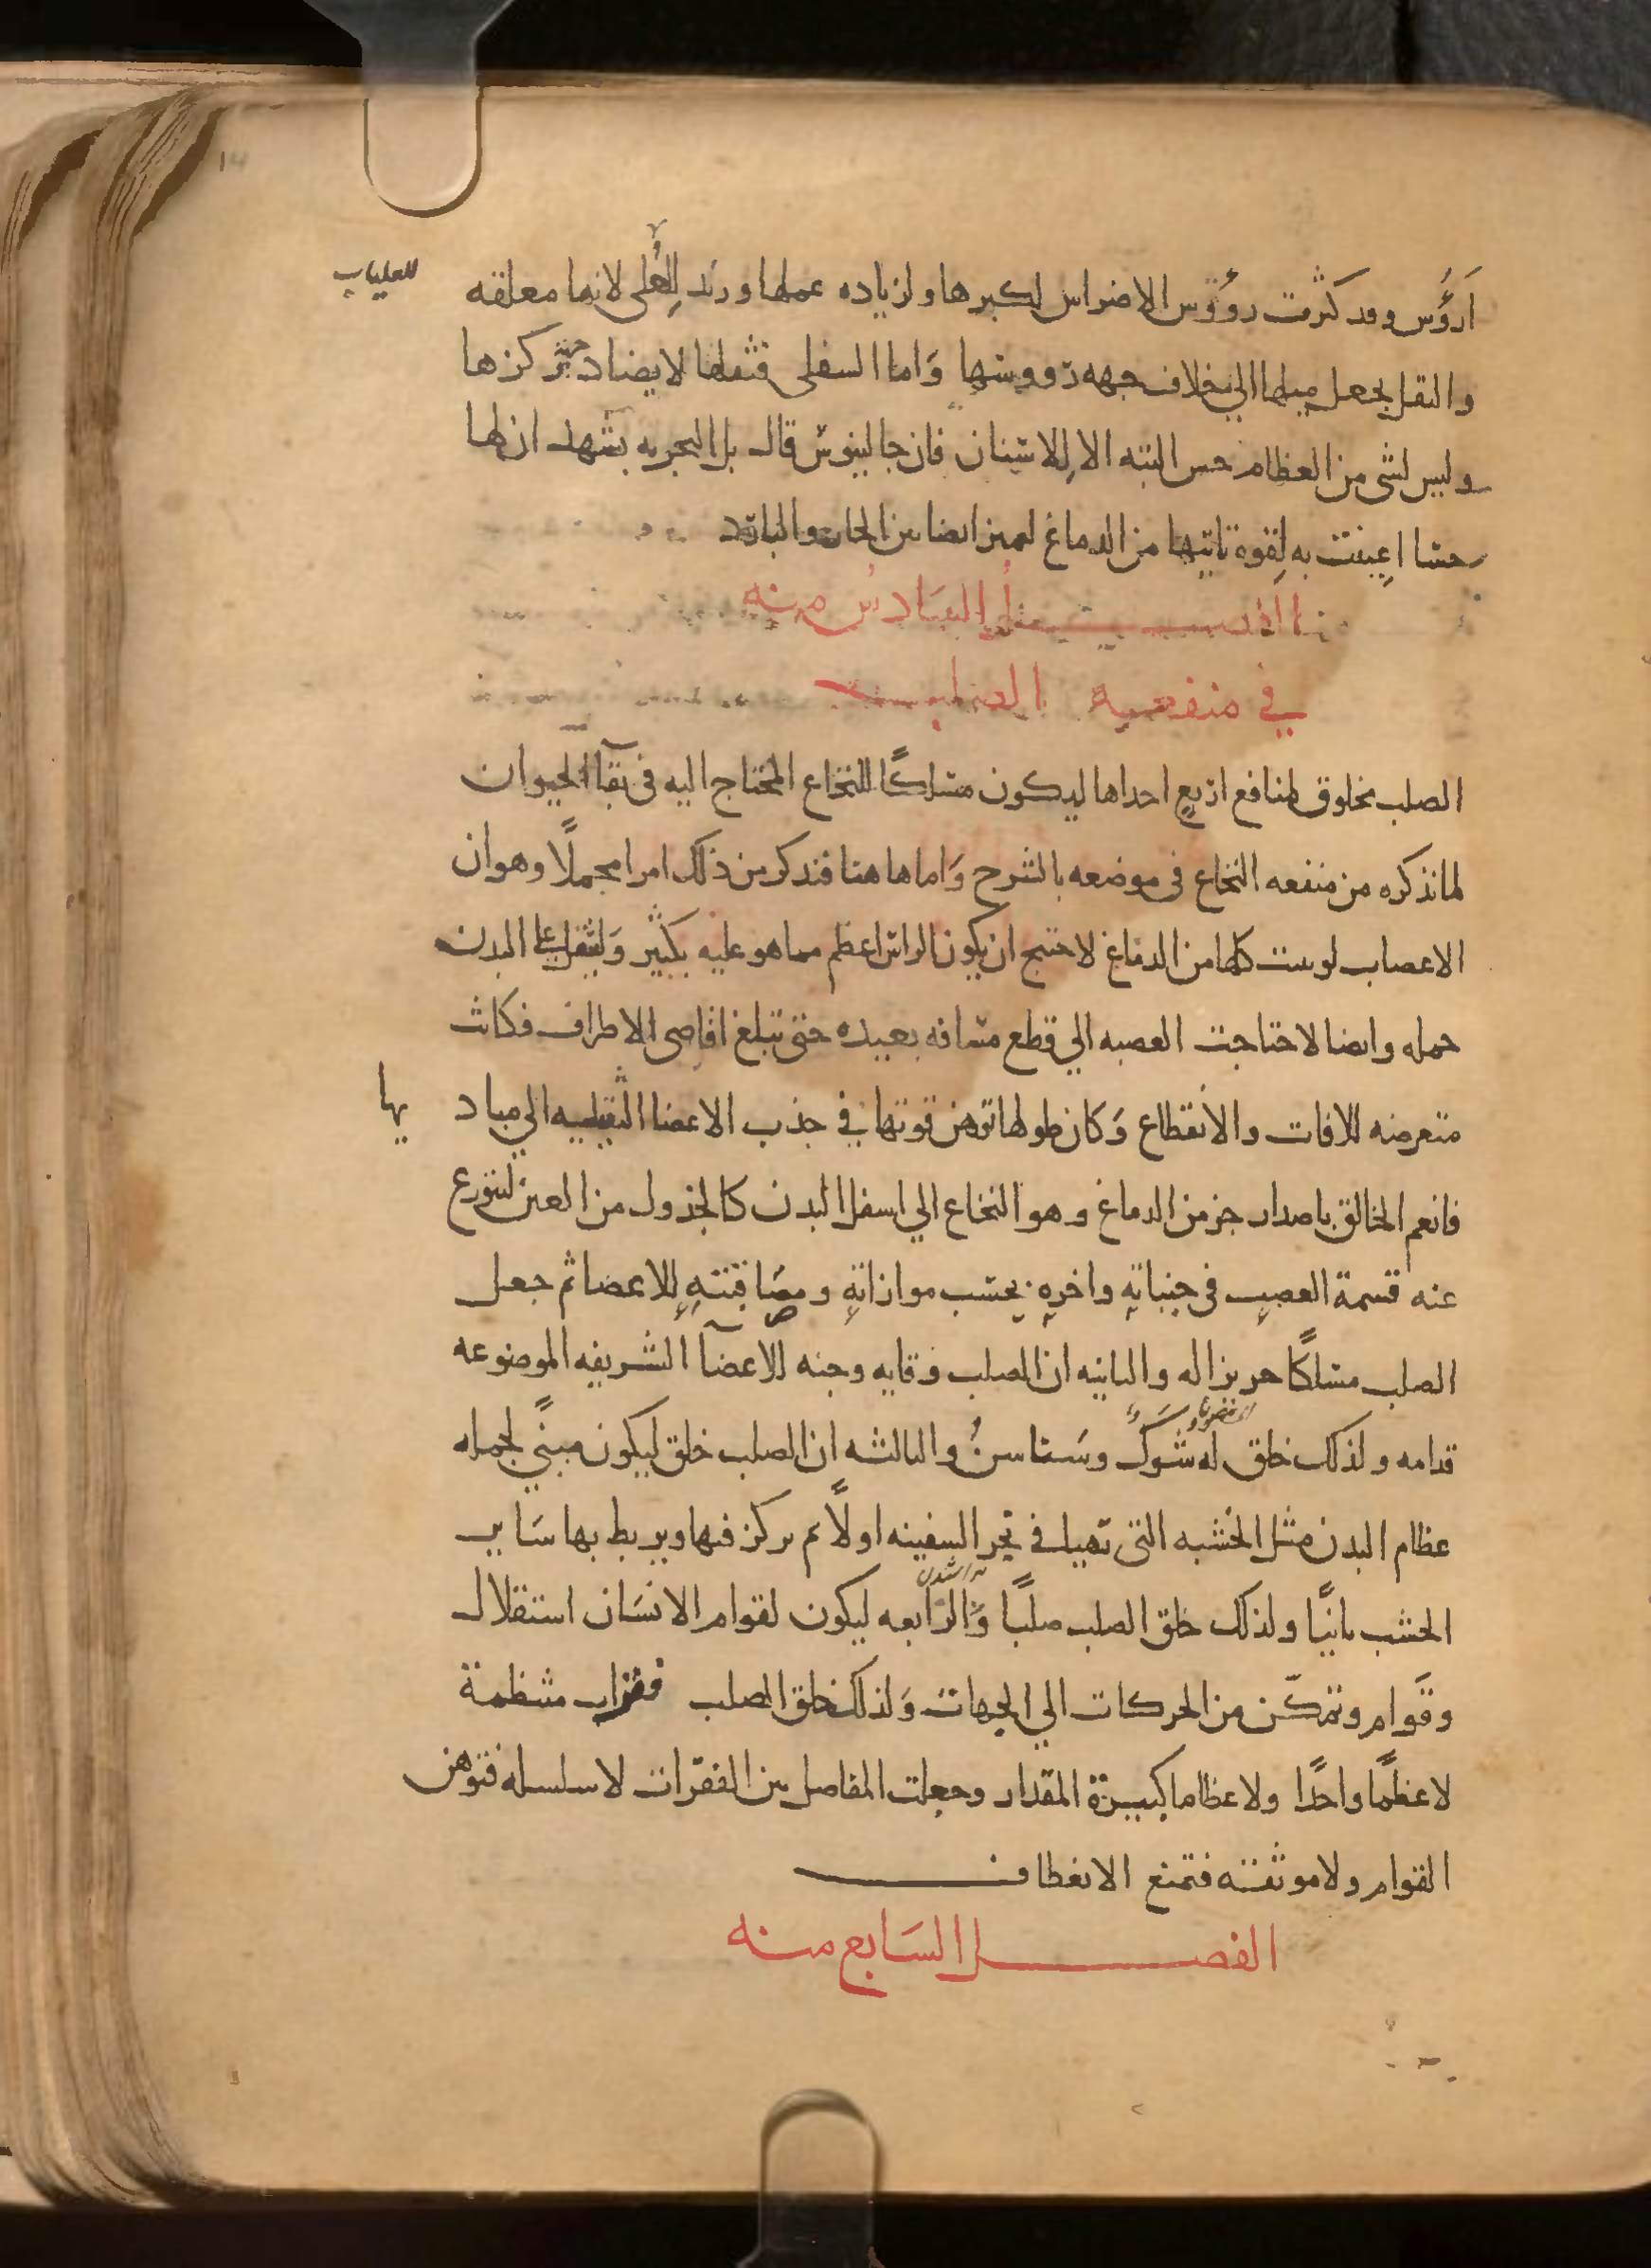 للعلياب
اَرؤُس وقد كثرت رؤوس الاضراس لكبرها ولزياده عملها وزيد للعُلى لانها معلقه
والثقل يجعل ميلها الي خلاف جهه رووسها وَاما السفلى فثقلها لا يضاد جهة ركزها
وليس لشى من العظام حس البته الا لِلاسنان فان جالينوس قال بل التجربه تشهد ان لها
حسا اعِينت به لِقوه تاتيها من الدماغ لتميز ايضا بين الحار والبارد
الفصل السَادسُ منه
في منفعه الصلب
الصلب مخلوق لمنافع اربعٍ احداها ليكون مسلكًا للنخاع المحتاج اليه في بقآ الحيوان
لما نذكره من منفعه النخاع في موضعه بالشرح وَاما هاهنا فنذكر من ذلك امرا مجملًا وهو ان
الاعصاب لو نبتت كلها من الدماغ لاحتيج ان يكون الراس اعظم مما هو عليه بكثير وَلثقل على البدن
حمله وايضا لاحتاجت العصبه الي قطع مسافه بعيده حتى تبلغ اقاصى الاطراف فكانت
متعرضه للافات والانقطاع وَكان طولها توهن قوتها في جذب الاعضا الثقيله الي مباد يها
فانعم الخالق باصدار جز من الدماغ وهو النخاع الي اسفل البدن كالجذول من العين لتتوزع
عنه قسمة العصبِ في جنباتهِ واخرهِ بحسب موازاتهِ ومصَاقبتهِ لِلاعضا ثم جعل
الصلب مسلكًا حريزا له والثانيه ان الصلب وقايه وجنه للاعضآ الشريفه الموضوعه
قدامه ولذلك خلق له شَوكٌ وسَناسن والثالثه ان الصلب خلق ليكون مبنًي لجمله
عظام البدن مثل الخشبه التي تهيا في نجر السفينه اولًا ثم يركز فيها ويربط بها سَاير
الخشب ثانيًا ولذلك خلق الصلب صلبًا وَالرَّابعه ليكون لقوام الانسَان استقلال
وقَوام وتمكّن من الحركات الي الجهات وَلذلك خلق الصلب فقرات منتظمة
لا عظمًا واحدًا ولا عظاما كبيرة المقدار وجعلت المفاصل بين الفقرات لا سلسله فتوهن
القوام ولا موثقته فتمنع الانعطاف
الفصل السَابع منه